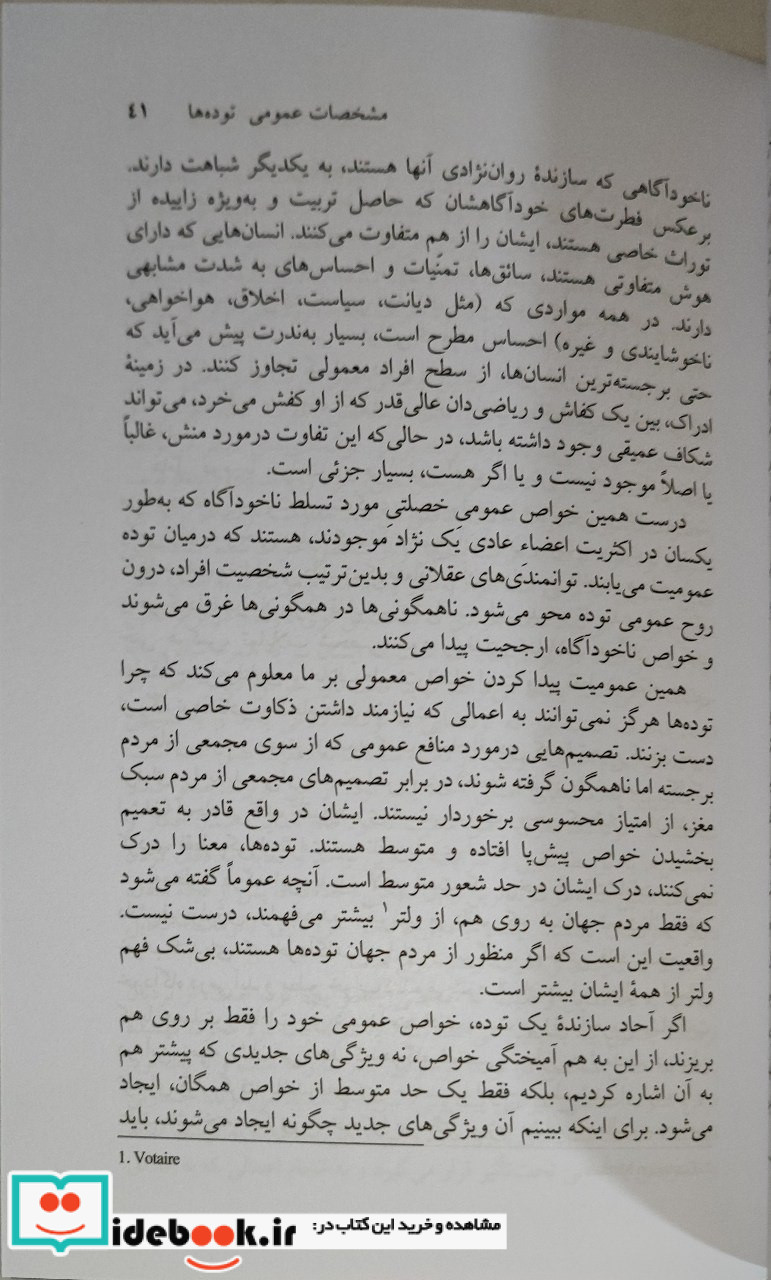 مشخصات عمومی توده‌ها ٤١
ناخودآگاهی که سازندهٔ روان‌نژادی آنها هستند، به یکدیگر شباهت دارند.
برعکس فطرت‌های خودآگاهشان که حاصل تربیت و به‌ویژه زاییده از
توراث خاصی هستند، ایشان را از هم متفاوت می‌کنند. انسان‌هایی که دارای
هوش متفاوتی هستند، سائق‌ها، تمنّیات و احساس‌های به شدت مشابهی
دارند. در همه مواردی که (مثل دیانت، سیاست، اخلاق، هواخواهی،
ناخوشایندی و غیره) احساس مطرح است، بسیار به‌ندرت پیش می‌آید که
حتی برجسته‌ترین انسان‌ها، از سطح افراد معمولی تجاوز کنند. در زمینهٔ
ادراک، بین یک کفاش و ریاضی‌دان عالی‌قدر که از او کفش می‌خرد، می‌تواند
شکاف عمیقی وجود داشته باشد، در حالی‌که این تفاوت درمورد منش، غالباً
یا اصلاً موجود نیست و یا اگر هست، بسیار جزئی است.
درست همین خواص عمومی خصلتی مورد تسلط ناخودآگاه که به‌طور
یکسان در اکثریت اعضاء عادی یک نژاد موجودند، هستند که درمیان توده
عمومیت می‌یابند. توانمندی‌های عقلانی و بدین‌ترتیب شخصیت افراد، درون
روح عمومی توده محو می‌شود. ناهمگونی‌ها در همگونی‌ها غرق می‌شوند
و خواص ناخودآگاه، ارجحیت پیدا می‌کنند.
همین عمومیت پیدا کردن خواص معمولی بر ما معلوم می‌کند که چرا
توده‌ها هرگز نمی‌توانند به اعمالی که نیازمند داشتن ذکاوت خاصی است،
دست بزنند. تصمیم‌هایی درمورد منافع عمومی که از سوی مجمعی از مردم
برجسته اما ناهمگون گرفته شوند، در برابر تصمیم‌های مجمعی از مردم سبک
مغز، از امتیاز محسوسی برخوردار نیستند. ایشان در واقع قادر به تعمیم
بخشیدن خواص پیش‌پا افتاده و متوسط هستند. توده‌ها، معنا را درک
نمی‌کنند، درک ایشان در حد شعور متوسط است. آنچه عموماً گفته می‌شود
که فقط مردم جهان به روی هم، از ولتر۱ بیشتر می‌فهمند، درست نیست.
واقعیت این است که اگر منظور از مردم جهان توده‌ها هستند، بی‌شک فهم
ولتر از همهٔ ایشان بیشتر است.
اگر آحاد سازندهٔ یک توده، خواص عمومی خود را فقط بر روی هم
بریزند، از این به هم آمیختگی خواص، نه ویژگی‌های جدیدی که پیشتر هم
به آن اشاره کردیم، بلکه فقط یک حد متوسط از خواص همگان، ایجاد
می‌شود. برای اینکه ببینیم آن ویژگی‌های جدید چگونه ایجاد می‌شوند، باید
1. Votaire
مشاهده و خرید این کتاب در:
idebook.ir